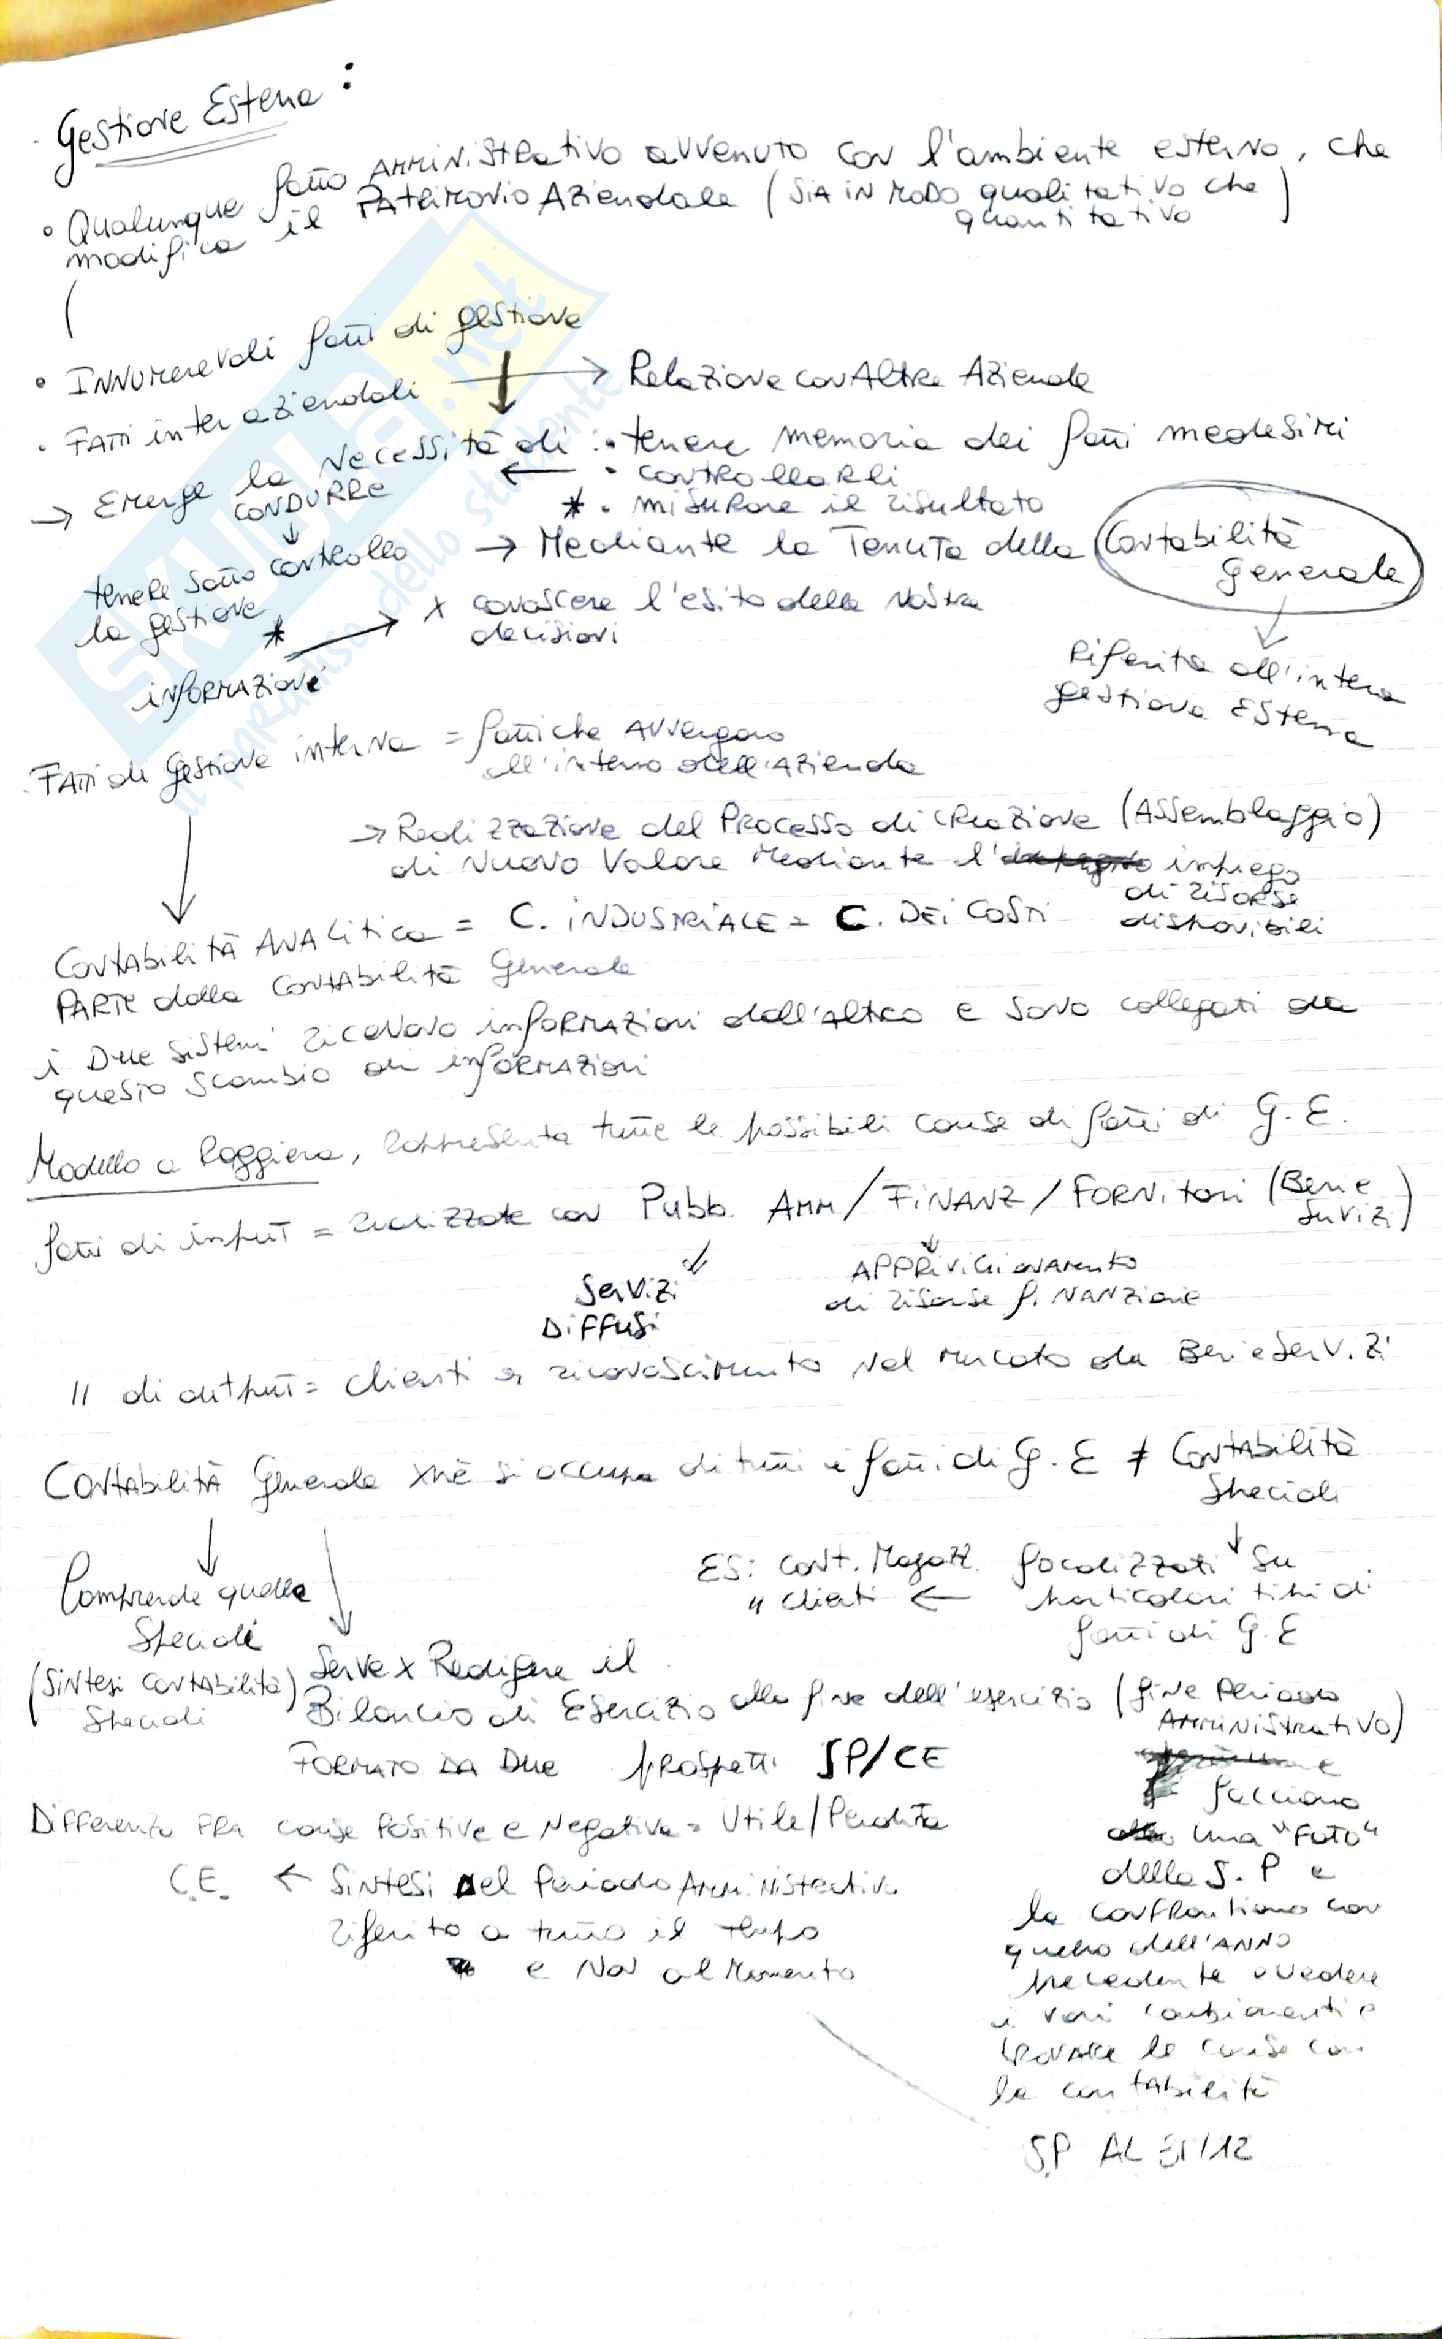 Gestione Esterna :
• Qualunque fatto AMMINISTRativo avvenuto con l'ambiente esterno, che
modifica il PATRIMONIO AZIENDALE (SIA IN MODO qualitativo che
quantitativo)
• INNUMEREVOLI fatti di gestione
• FATTI interaziendali → Relazione con Altre Aziende
→ Emerge la Necessità di : • tenere memoria dei fatti medesimi
CONDURRE ← • controllarli
* • misurare il risultato
tenere sotto controllo
la gestione
→ Mediante la Tenuta della Contabilità
Generale
* x conoscere l'esito della nostra
decisioni
informazioni
Riferita all'intera
gestione Esterna
FATTI di Gestione interna = fatti che avvengono
all'interno dell'Azienda
→ Realizzazione del Processo di creazione (Assemblaggio)
di Nuovo Valore Mediante l' impiego
di risorse
disponibili
Contabilità ANAlitica = C. iNDUSTRiALE = C. DEi COSTi
PARTE dalla Contabilità Generale
i Due sistemi ricevono informazioni dall'altro e sono collegati da
questo scambio di informazioni
Modello a Raggiera, rappresenta tutte le possibili cause di fatti di G.E.
fatti di input = realizzate con Pubb. Amm/FiNANZ/FORNitori (Beni e
Servizi)
Servizi
DiFFUSi
APPROVViGiONAMENTO
di risorse fiNANZiarie
" di output = clienti riconoscimento nel mercato da Beni e Servizi
Contabilità Generale xchè si occupa di tutti i fatti di G.E ≠ Contabilità
Speciali
Comprende quelle
Speciali
(Sintesi contabilità
Speciali)
ES: cont. Magazz.
" clienti ←
focalizzati su
particolari tipi di
fatti di G.E
Serve x Redigere il
Bilancio di Esercizio alla fine dell'esercizio (fine Periodo
AMMiNiStrativo)
FORMATO DA DUE prospetti SP/CE
facciamo
una "FOTO"
dello S.P e
la confrontiamo con
quello dell'ANNO
precedente vedere
i vari cambiamenti e
trovare le cause con
la contabilità
Differenza FRA cause Positive e Negative = Utile/Perdita
C.E. ← Sintesi del Periodo Amministrativo
riferito a tutto il tempo
e Non al Momento
S.P AL 31/12
SKUOLA.net
il paradiso dello studente